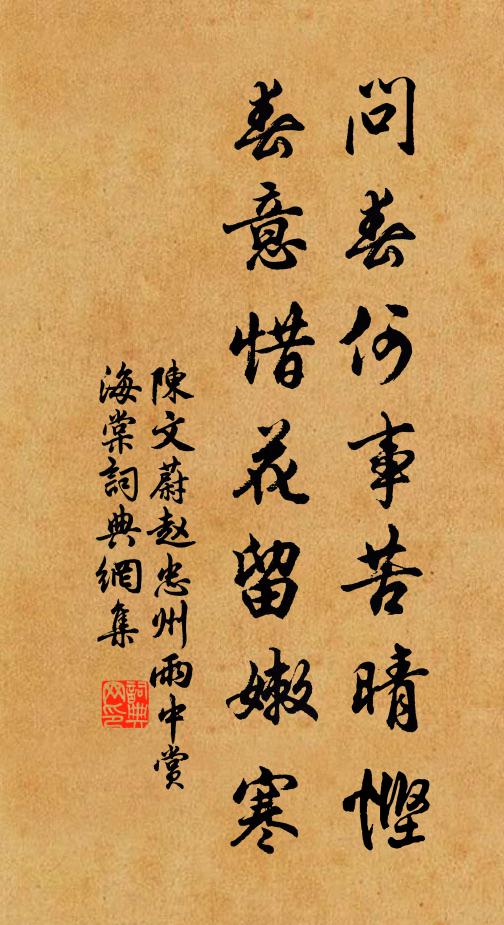 問春何事苦晴慳
春意惜花留嫩寒
陳文蔚赵忠州雨中賞
海棠詞典網集
詞典
网印